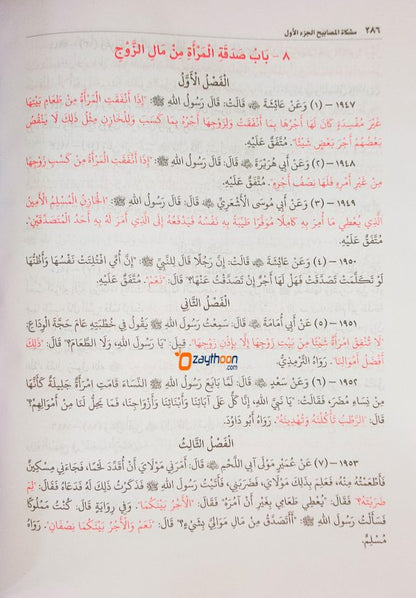 ٢٨٦ مشكاة المصابيح الجزء الأول
٨ - بَابُ صَدَقَةِ الْمَرْأَةِ مِنْ مَالِ الزَّوْجِ
الْفَصْلُ الْأَوَّلُ
١٩٤٧ – (١) وَعَنْ عَائِشَةَ ﵂ قَالَتْ: قَالَ رَسُولُ اللهِ ﷺ: "إِذَا أَنْفَقَتِ الْمَرْأَةُ مِنْ طَعَامِ بَيْتِهَا
غَيْرَ مُفْسِدَةٍ كَانَ لَهَا أَجْرُهَا بِمَا أَنْفَقَتْ وَلِزَوْجِهَا أَجْرُهُ بِمَا كَسَبَ وَلِلْخَازِنِ مِثْلُ ذٰلِكَ لَا يَنْقُصُ
بَعْضُهُمْ أَجْرَ بَعْضٍ شَيْئًا". مُتَّفَقٌ عَلَيْهِ.
١٩٤٨ – (٢) وَعَنْ أَبِي هُرَيْرَةَ ﵁ قَالَ: قَالَ رَسُولُ اللهِ ﷺ: "إِذَا أَنْفَقَتِ الْمَرْأَةُ مِنْ كَسْبِ زَوْجِهَا
مِنْ غَيْرِ أَمْرِهِ فَلَهَا نِصْفُ أَجْرِهِ". مُتَّفَقٌ عَلَيْهِ.
١٩٤٩ – (٣) وَعَنْ أَبِي مُوسَى الْأَشْعَرِيِّ ﵁ قَالَ: قَالَ رَسُولُ اللهِ ﷺ: "الْخَازِنُ الْمُسْلِمُ الْأَمِينُ
الَّذِي يُعْطِي مَا أُمِرَ بِهِ كَامِلًا مُوَفَّرًا طَيِّبَةً بِهِ نَفْسُهُ فَيَدْفَعُهُ إِلَى الَّذِي أُمِرَ لَهُ بِهِ أَحَدُ الْمُتَصَدِّقَيْنِ".
مُتَّفَقٌ عَلَيْهِ.
١٩٥٠ – (٤) وَعَنْ عَائِشَةَ ﵂ قَالَتْ: إِنَّ رَجُلًا قَالَ لِلنَّبِيِّ ﷺ: "إِنَّ أُمِّي افْتُلِتَتْ نَفْسُهَا وَأَظُنُّهَا
لَوْ تَكَلَّمَتْ تَصَدَّقَتْ فَهَلْ لَهَا أَجْرٌ إِنْ تَصَدَّقْتُ عَنْهَا؟" قَالَ: "نَعَمْ". مُتَّفَقٌ عَلَيْهِ.
الْفَصْلُ الثَّانِي
١٩٥١ – (٥) عَنْ أَبِي أُمَامَةَ ﵁ قَالَ: سَمِعْتُ رَسُولَ اللهِ ﷺ يَقُولُ فِي خُطْبَتِهِ عَامَ حَجَّةِ الْوِدَاعِ:
"لَا تُنْفِقِ امْرَأَةٌ شَيْئًا مِنْ بَيْتِ زَوْجِهَا إِلَّا بِإِذْنِ زَوْجِهَا". قِيلَ: "يَا رَسُولَ اللهِ، وَلَا الطَّعَامَ؟" قَالَ: "ذٰلِكَ
أَفْضَلُ أَمْوَالِنَا". رَوَاهُ التِّرْمِذِيُّ.
Ozaythoon
.com
١٩٥٢ – (٦) وَعَنْ سَعْدٍ ﵁ قَالَ: لَمَّا بَايَعَ رَسُولُ اللهِ ﷺ النِّسَاءَ قَامَتِ امْرَأَةٌ جَلِيلَةٌ كَأَنَّهَا
مِنْ نِسَاءِ مُضَرَ، فَقَالَتْ: "يَا نَبِيَّ اللهِ، إِنَّا كَلٌّ عَلَى آبَائِنَا وَأَبْنَائِنَا وَأَزْوَاجِنَا، فَمَا يَحِلُّ لَنَا مِنْ أَمْوَالِهِمْ؟"
قَالَ: "الرَّطْبُ تَأْكُلْنَهُ وَتُهْدِينَهُ". رَوَاهُ أَبُو دَاوُدَ.
الْفَصْلُ الثَّالِثُ
١٩٥٣ – (٧) عَنْ عُمَيْرٍ مَوْلَى آبِي اللَّحْمِ ﵁ قَالَ: أَمَرَنِي مَوْلَايَ أَنْ أُقَدِّدَ لَحْمًا، فَجَاءَنِي مِسْكِينٌ
فَأَطْعَمْتُهُ مِنْهُ، فَعَلِمَ بِذٰلِكَ مَوْلَايَ، فَضَرَبَنِي، فَأَتَيْتُ رَسُولَ اللهِ ﷺ فَذَكَرْتُ ذٰلِكَ لَهُ فَدَعَاهُ فَقَالَ: "لِمَ
ضَرَبْتَهُ؟" فَقَالَ: "يُعْطِي طَعَامِي بِغَيْرِ أَنْ آمُرَهُ". فَقَالَ: "الْأَجْرُ بَيْنَكُمَا". وَفِي رِوَايَةٍ قَالَ: كُنْتُ مَمْلُوكًا
فَسَأَلْتُ رَسُولَ اللهِ ﷺ: "أَأَتَصَدَّقُ مِنْ مَالِ مَوَالِيَّ بِشَيْءٍ؟" قَالَ: "نَعَمْ وَالْأَجْرُ بَيْنَكُمَا نِصْفَانِ". رَوَاهُ
مُسْلِمٌ.